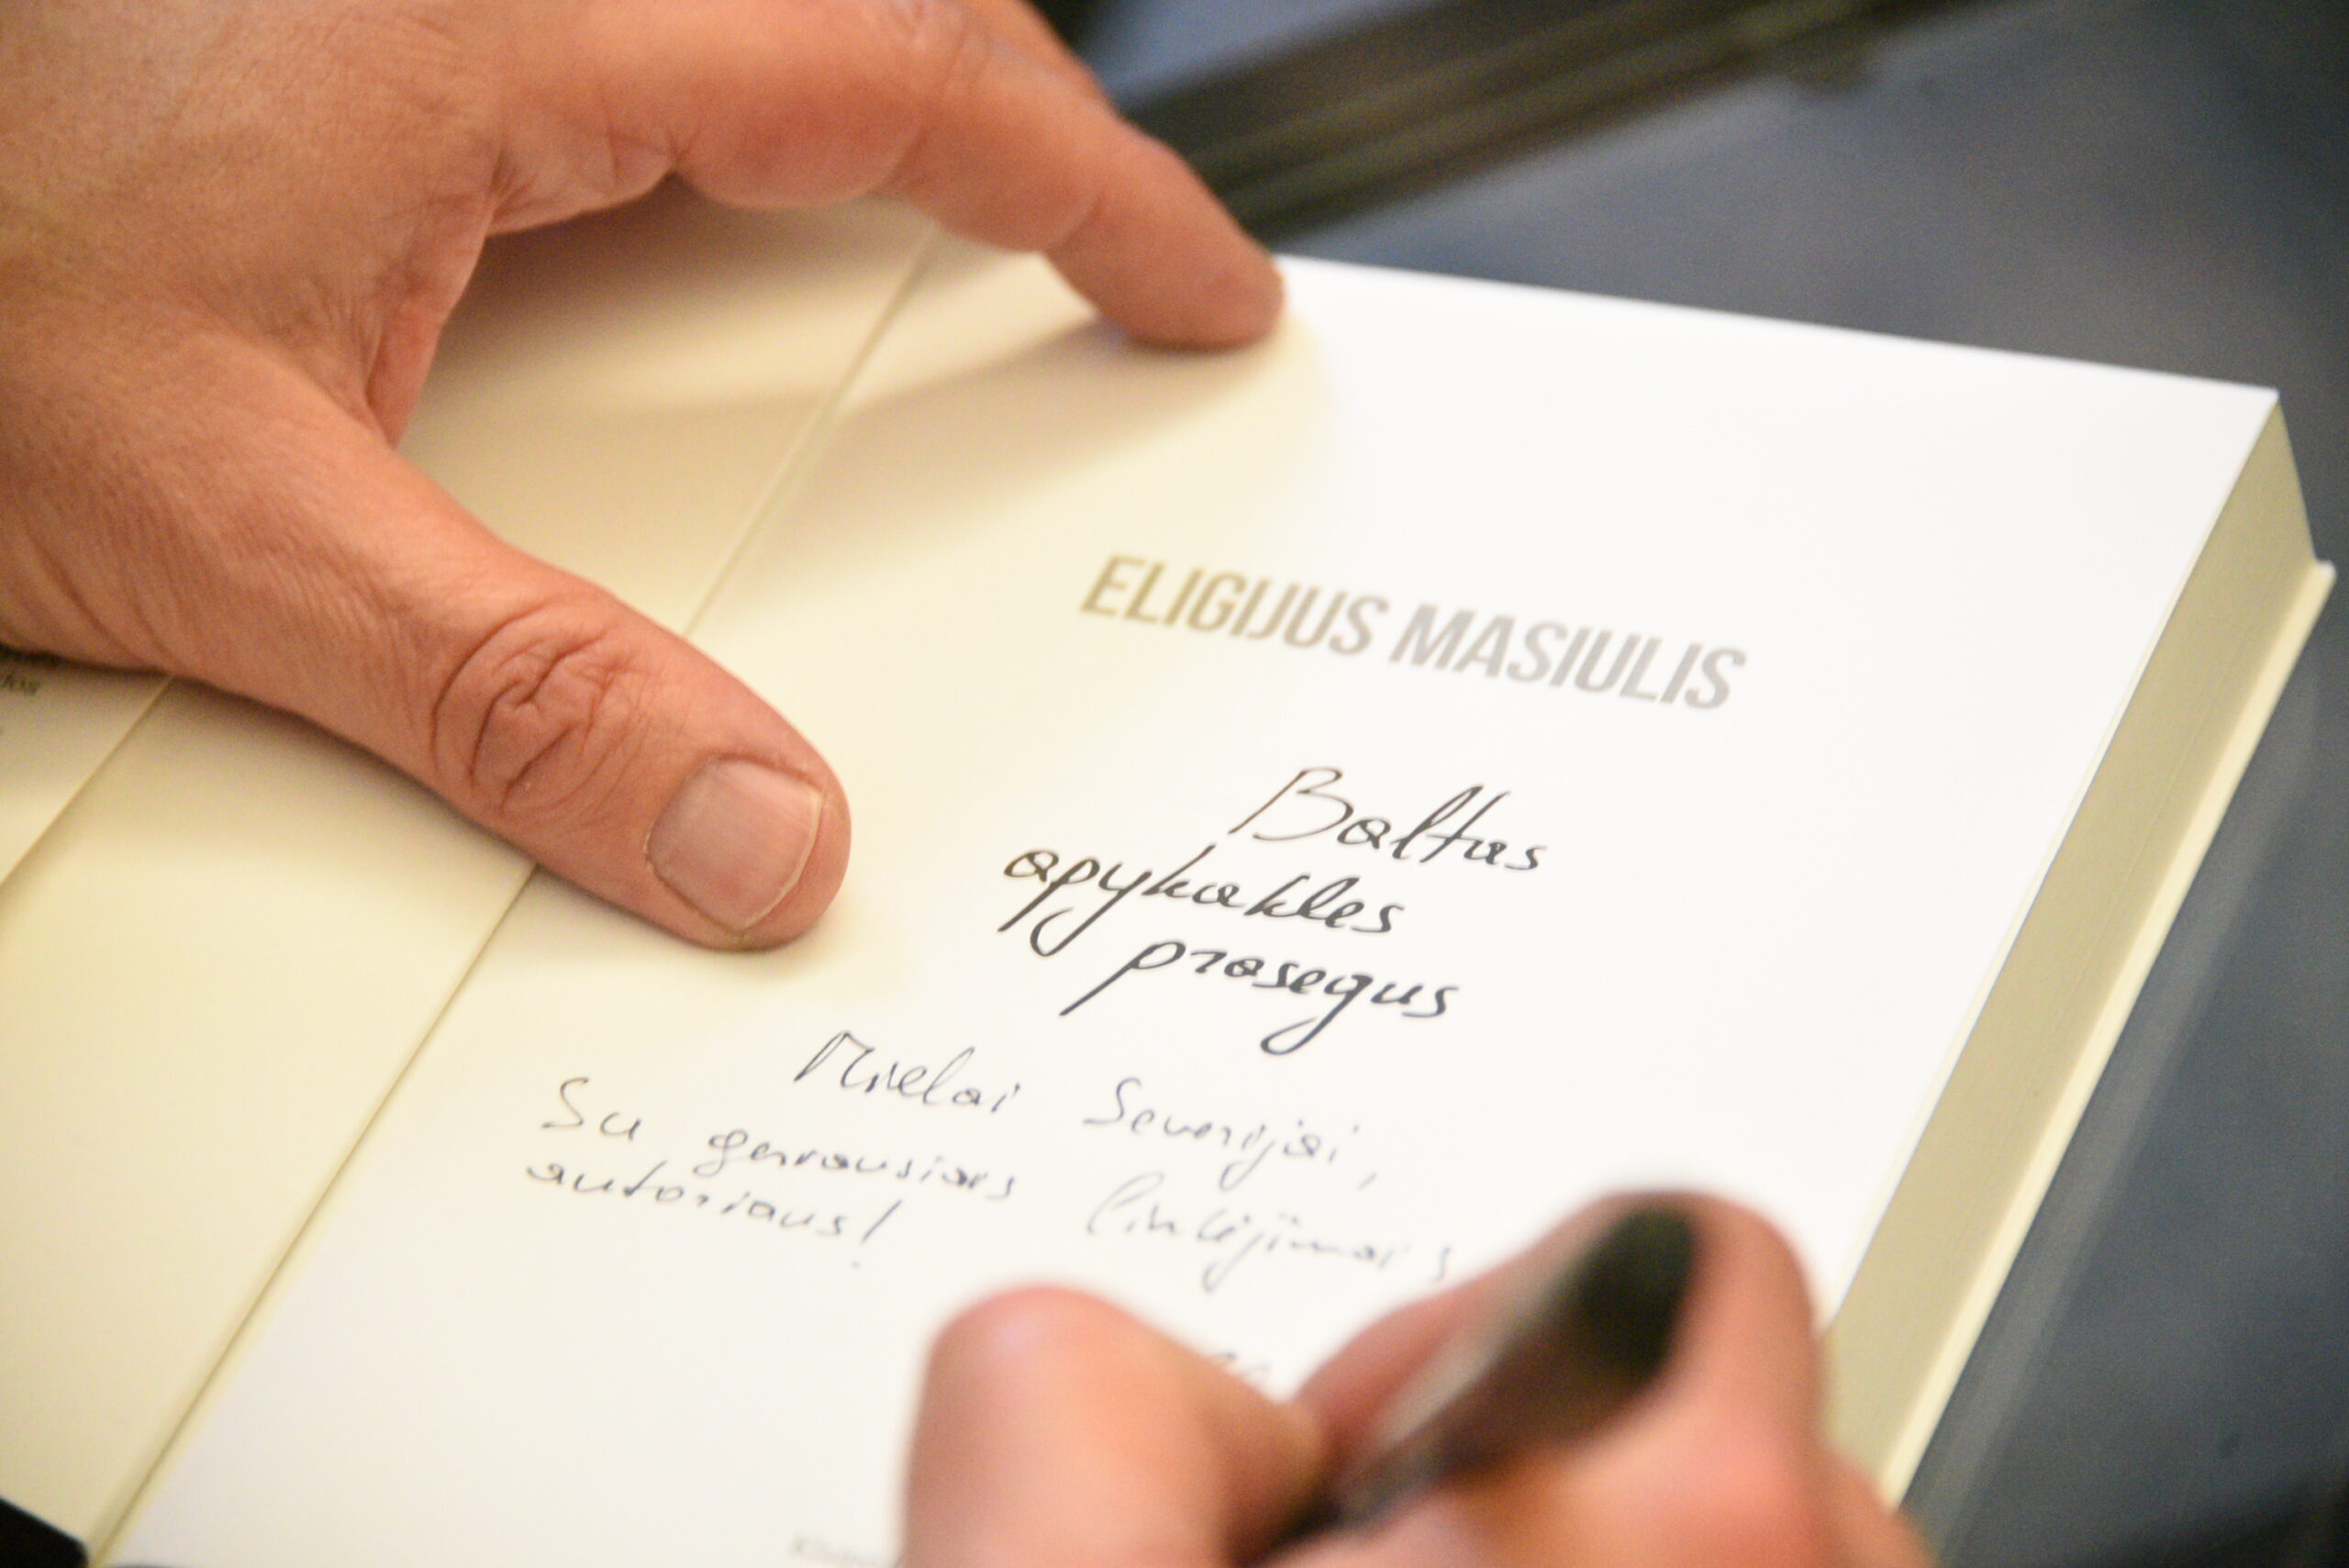 ELIGIJUS MASIULIS
Baltas
apykakles
prasegus
Mielai Severijai,
Su geriausiais linkėjimais
autoriaus!